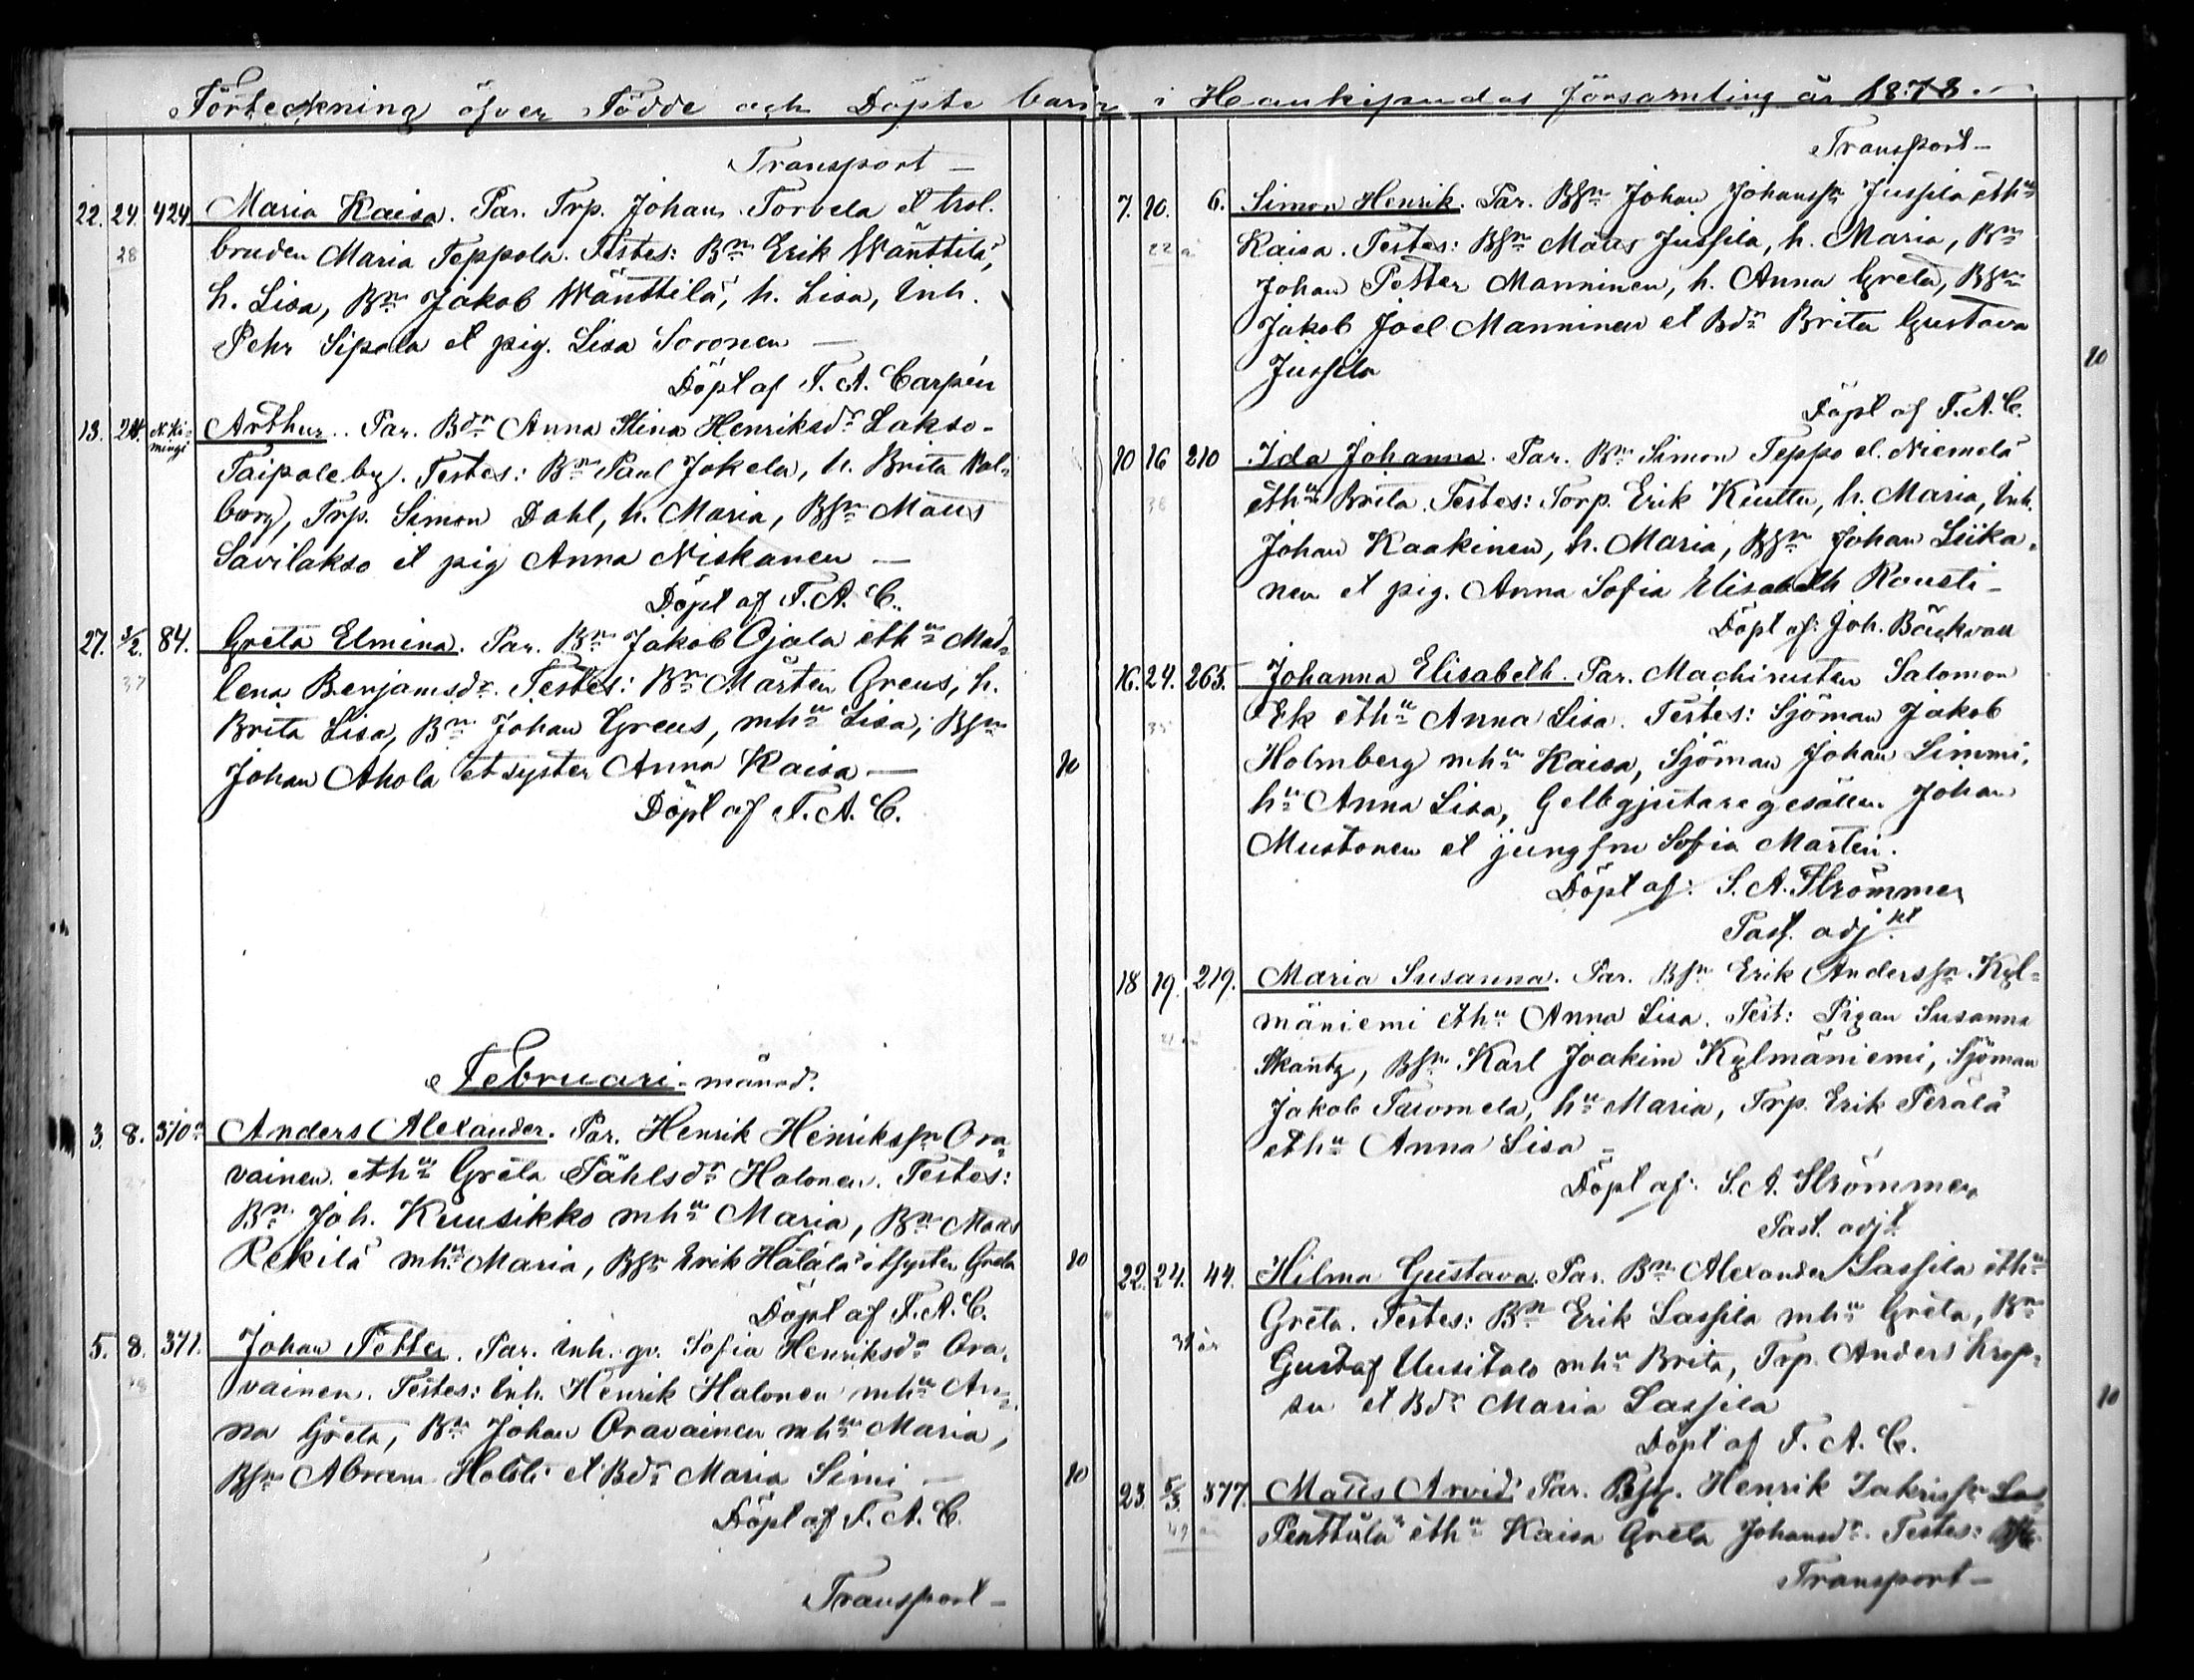 Förteckning öfver Födde och Döpte barn i Haukipudas församling år 1878.
Transport
22. 24. 424 Maria Kaisa. Par. Trp. Johan Torvela et trol.
28 bruden Maria Teppola. Testes: Bn Erik Wänttilä,
h. Lisa, Bn Jakob Wänttilä, h. Lisa, Inh.
Pehr Sipola et pig. Lisa Soronen
Döpt af F. A. Carpén
13. 24. Arthur. Par. Bdr Anna Stina Henriksdr Lakso-
Taipaleby. Testes: Bn Paul Jokela, h. Brita Val-
borg, Trp. Simon Dahl, h. Maria, Bsn Matts
Savilakso et pig Anna Niskanen
Döpt af F. A. C.
27. 3/2. 84. Greta Elmina. Par. Bn Jakob Ojala et hu Mad-
37 lena Benjamsdr. Testes: Bn Mårten Greus, h.
Brita Lisa, Bn Johan Greus, m hu Lisa, Bsn
Johan Ahola et syster Anna Kaisa 10
Döpt af F. A. C.
Februari-månad.
3. 8. 370 Anders Alexander. Par. Henrik Henrikssn Ora-
vainen et hu Greta Påhlsdr Halonen. Testes:
Bn Joh. Kuusikko m hu Maria, Bn Matts
Kekilä m hu Maria, Bsn Erik Hälälä et syster Greta 10
Döpt af F. A. C.
5. 8. 371. Johan Petter. Par. Inh. gv. Sofia Henriksdr Ora-
vainen. Testes: Inh. Henrik Halonen m hu An-
na Greta, Bn Johan Oravainen m hu Maria,
Bsn Abram Holsti et Bdr Maria Simi 10
Döpt af F. A. C.
Transport
Transport
7. 10. 6. Simon Henrik. Par. Bsn Johan Johanssn Jussila et hu
22 Kaisa. Testes: Bsn Matts Jussila, h. Maria, Bn
Johan Petter Manninen, h. Anna Greta, Bsn
Jakob Joel Manninen et Bdr Brita Gustava
Jussila 10
Döpt af F. A. C.
10 16 210 Ida Johanna. Par. Bn Simon Teppo el. Niemelä
38 et hu Brita. Testes: Torp. Erik Kuttu, h. Maria, Inh.
Johan Kaakinen, h. Maria, Bsn Johan Liika-
nen et pig. Anna Sofia Elisabeth Rousti
Döpt af: Joh. Bäckvall
16. 24. 265. Johanna Elisabeth. Par. Machinisten Salomon
35 Ek et hu Anna Lisa. Testes: Sjöman Jakob
Holmberg m hu Kaisa, Sjöman Johan Simmi,
hu Anna Lisa, Gelbgjutaregesällen Johan
Mustonen et jungfru Sofia Martin.
Döpt af: S. A. Strömmer
Past. adjkt
18 19. 219. Maria Susanna. Par. Bsn Erik Anderssn Kyl-
mäniemi et hu Anna Lisa. Test: Pigan Susanna
Skantz, Bsn Karl Joakim Kylmäniemi, Sjöman
Jakob Tuomela, hu Maria, Trp. Erik Perälä
et hu Anna Lisa
Döpt af: S. A. Strömmer
Past. adjt
22. 24. 44. Hilma Gustava. Par. Bn Alexander Lassila et hu
Greta. Testes: Bn Erik Lassila m hu Greta, Bn
Gustaf Uusitalo m hu Brita, Trp. Anders Krop-
su et Bdr Maria Lassila 10
Döpt af F. A. C.
23. 5/3. 377. Matts Arvid. Par. Henrik Zakrissn
49 Penttilä et hu Kaisa Greta Johansdr. Testes:
Transport